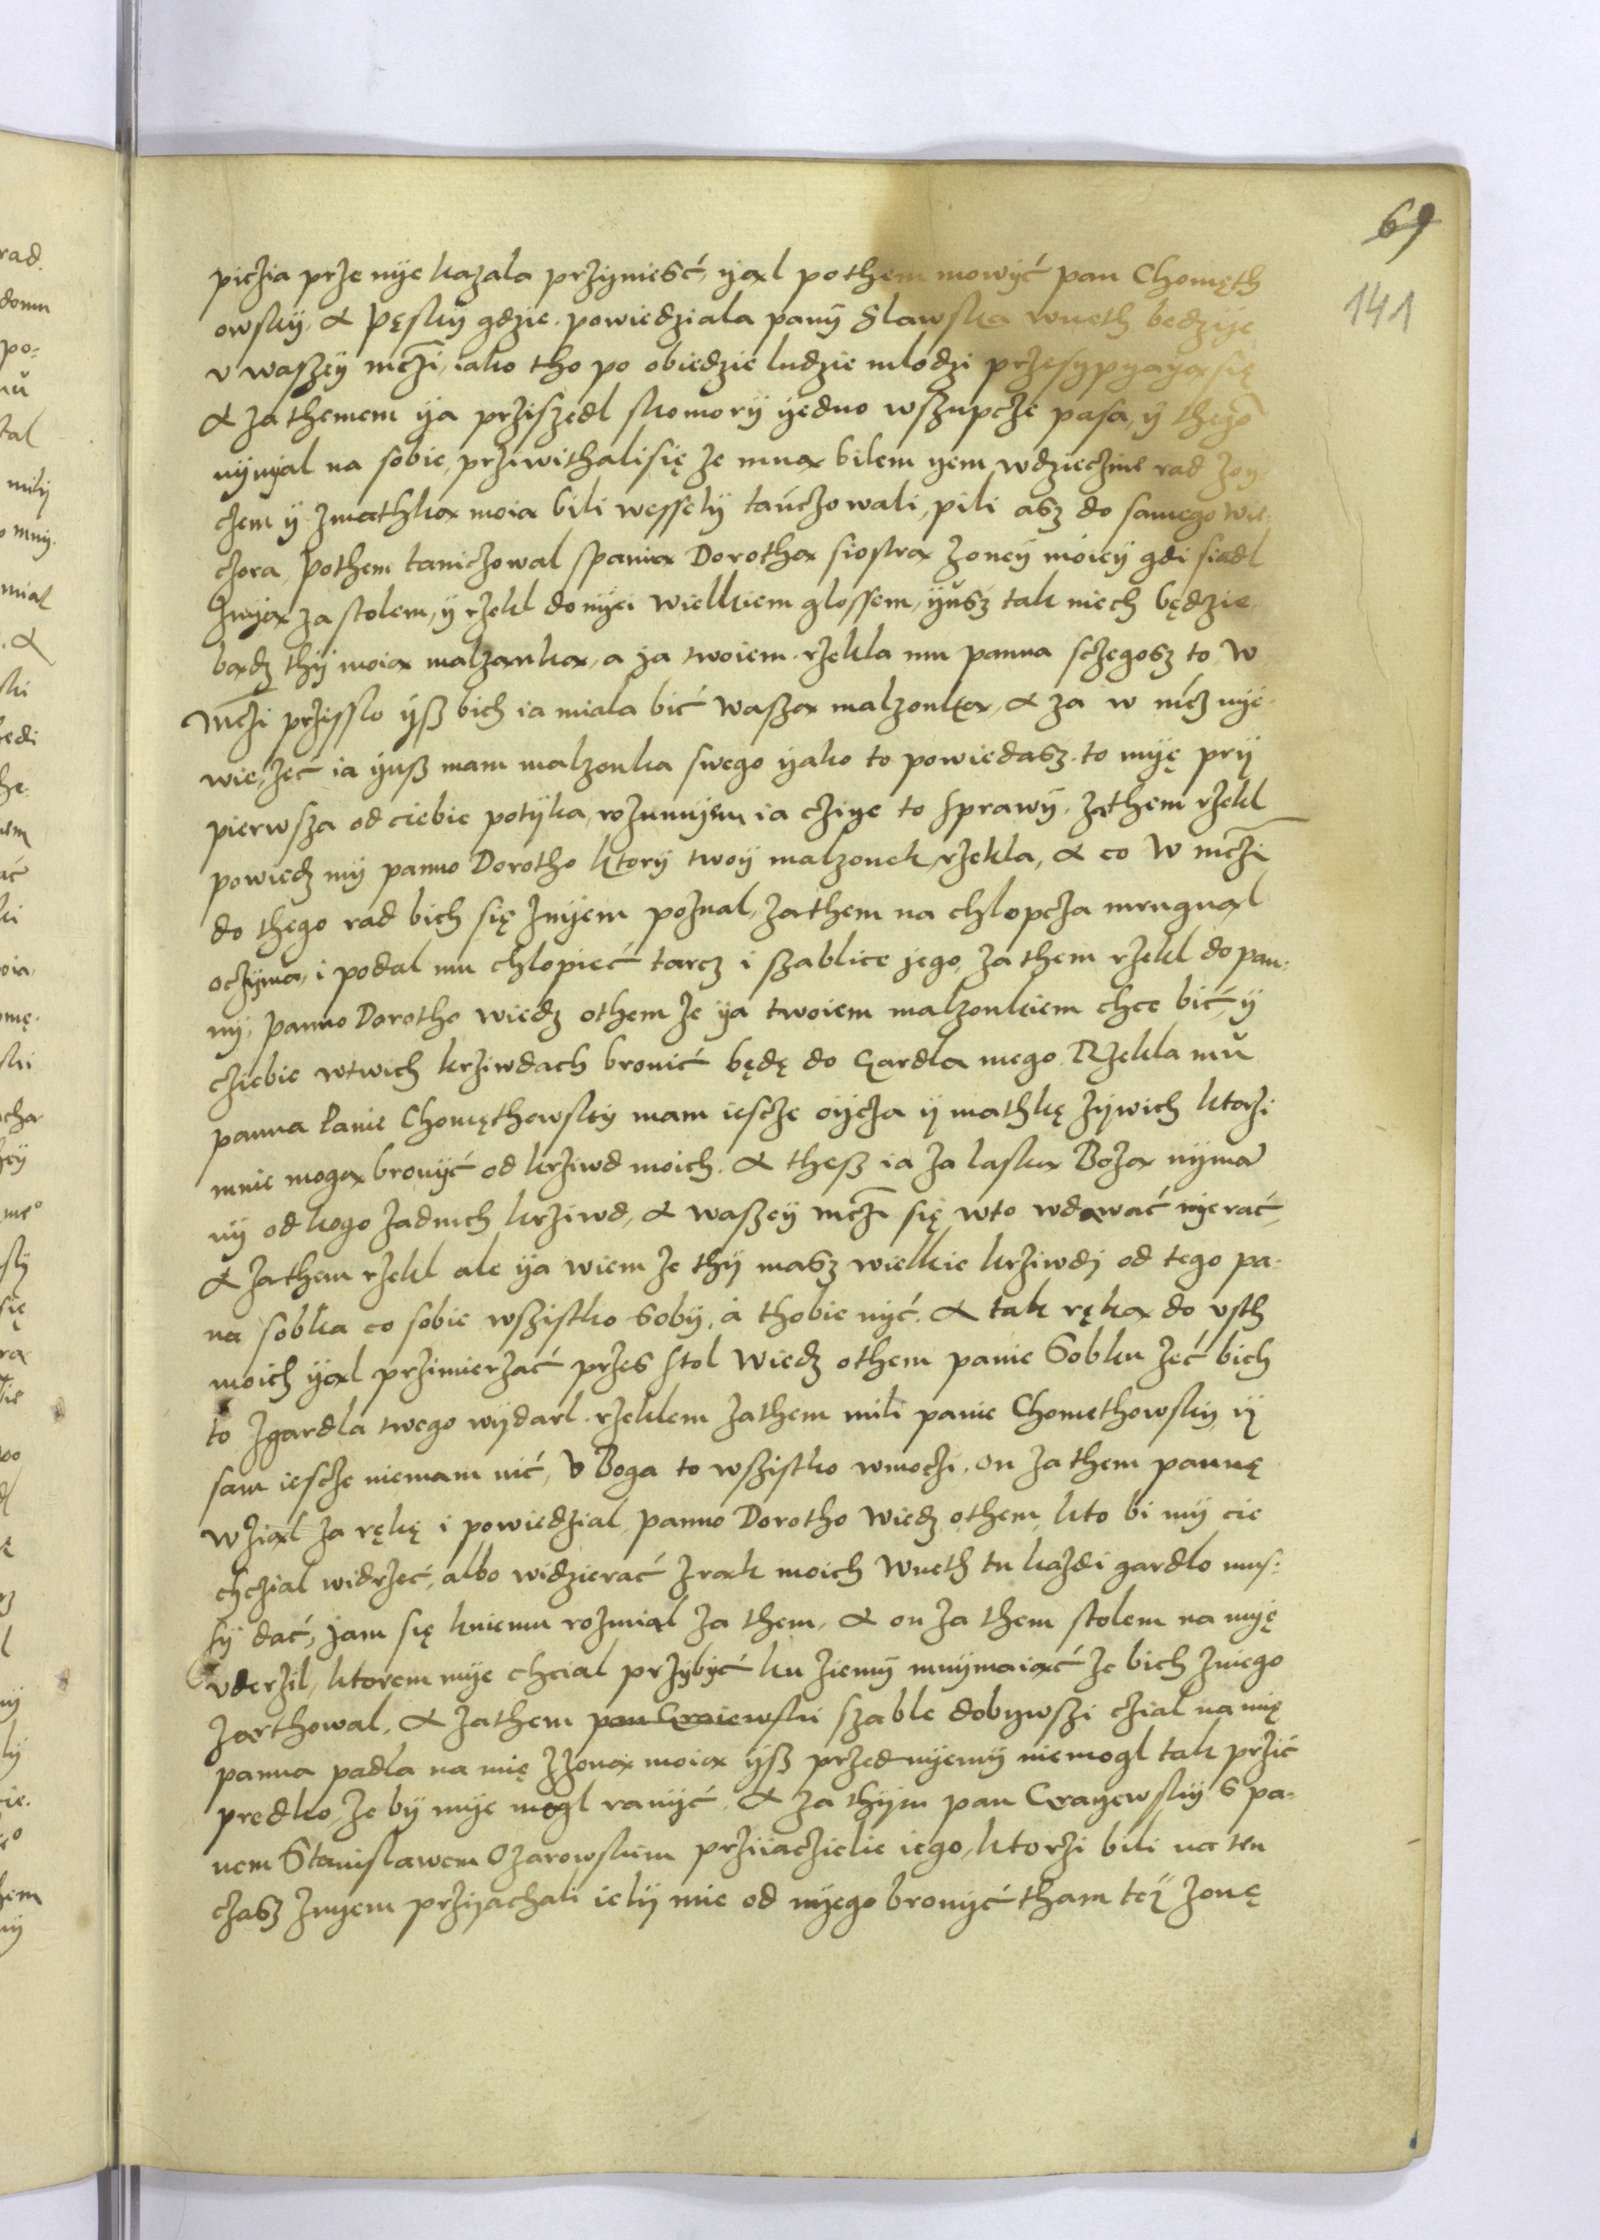 69
141
piczia prze nÿe kazala przÿniesć, ÿaxl pothem mowÿć pan Chomęth
owskÿ, & Pęskÿ gdzie. powiedziala panÿ Slawska wneth bedzÿe
v waszeÿ mczi, iako tho po obiedzie ludzie mlodzi przesypÿaÿax się
& za themem ÿa prziszedl skomorÿ ÿedno wszupcze pasa, ÿ thego
nÿmÿal na sobie, prziwithalisię ze mnax bilem ÿem wdziecznie rad
czem ÿ zmathkax moia bili wesselÿ tańczowali, pili asz do samego wie
czora, Pothem taniczowal spaniax Dorothax siostrax zoneÿ moieÿ gdi siadl
znÿax za stolem, ÿ rzekl donÿei wielkiem glossem, ÿusz tak niech będzie
baxdz thÿ moiax malzankax, a ja twoiem. rzekla mu panna sczegosz to W
Mczi przisslo ÿsz bich ia miala bić waszax malzonkax, & za w mcz nÿe
wie, zeć ia ÿusz mam malzonka swego ÿako to powiedasz. to mÿę prÿ
pierwsza od ciebie potÿka, rozumÿem ia czÿe to sprawÿ. zathem rzekl
powiedz mÿ panno Dorotho ktorÿ twoÿ malzonek, rzekla, & co W mczi
do thego rad bich się znÿem poznal, zathem na chlopcza mrugnaxl
oczÿma, i podal mu chlopieć tarcz i szablice jego, za them rzekl do pan:
nÿ, panno Dorotho wiedz othem ze ÿa twoiem malzonkiem chce bić, ÿ
cziebie wtwich krziwdach bronić będę do Gardla mego. Rzekla mŭ
panna Panie Chomęthowskÿ mam iescze oÿcza ÿ mathkę zÿwich ktorzi
mnie mogax bronÿć od krziwd moich. & thesz ia za laskax Bozax nÿmam
nÿ od kogo zadnich krziwd, & waszeÿ mczi się wto wdawać nÿerać,
& zathem rzekl ale ÿa wiem ze thÿ masz wielkie krziwdi od tego pa-
na sobka co sobie wszistko sobÿ, á thobie nÿć. & tak rękax do vsth
moich ÿaxl przimierzać przes stol Wiedz othem panie Sobku zeć bich
to zgardla twego wÿdarl. rzeklem zathem mili panie Chomethowskÿ, ÿ
sam iescze niemam nić, V Boga to wszistko wmoczi. on za them pannę
wziaxl za rękę i powiedzial, panno Dorotho wiedz othem, kto bi mÿ cie
chczial widrzeć, albo widzierać zraxk moich Wneth tu kazdi gardlo mus:
sÿ dać, jam się kniemu rozmial za them, & on za them stolem na mÿę
vderzil, ktorem mÿe chcial przÿbÿć ku ziemÿ mnÿmaiaxć ze bich zniego
zarthowal, & zathem pan Graiewski szable dobÿwszi czial na mię
panna padla na mię zzonax moiax ÿsz przed nÿemÿ niemogl tak przić
predko, ze bÿ mÿe mogl ranÿć. & za thÿm pan Graÿewskÿ s pa-
nem Stanislawem Ozarowskim prziiacziele iego, ktorzi bili na ten
czasz znÿem przÿjachali ielÿ mie od nÿego bronÿć tham teÿ zonę